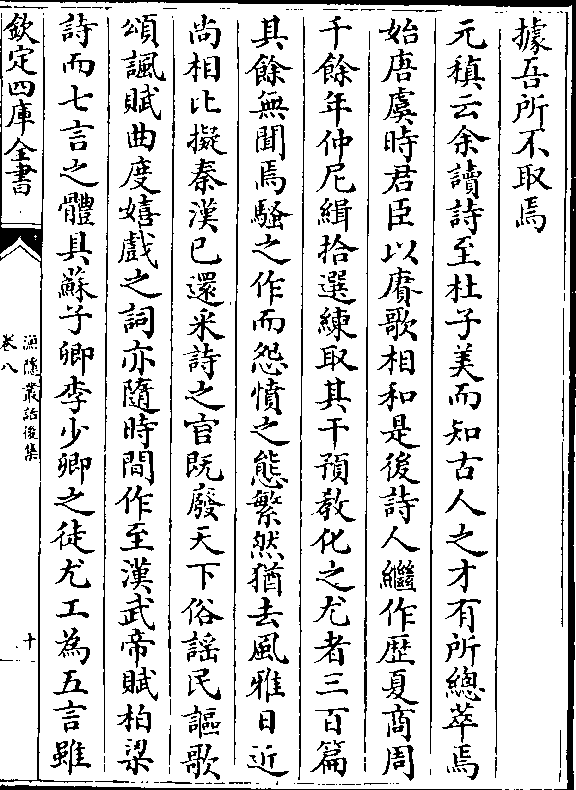 據吾所不取焉
元稹云余讀詩至杜子美而知古人之才有所總萃焉
始唐虞時君臣以賡歌相和是後詩人繼作歴夏商周
千餘年仲尼緝拾選練取其干預教化之尤者三百篇
其餘無聞焉騷之作而怨憤之態繁然猶去風雅日近
尚相比擬秦漢已還采詩之官既廢天下俗謡民謳歌
頌諷賦曲度嬉戲之詞亦隨時間作至漢武帝賦柏梁
詩而七言之體具蘇子卿李少卿之徒尤工為五言雖
欽定四庫全書
漁隱叢話後集
卷八
十